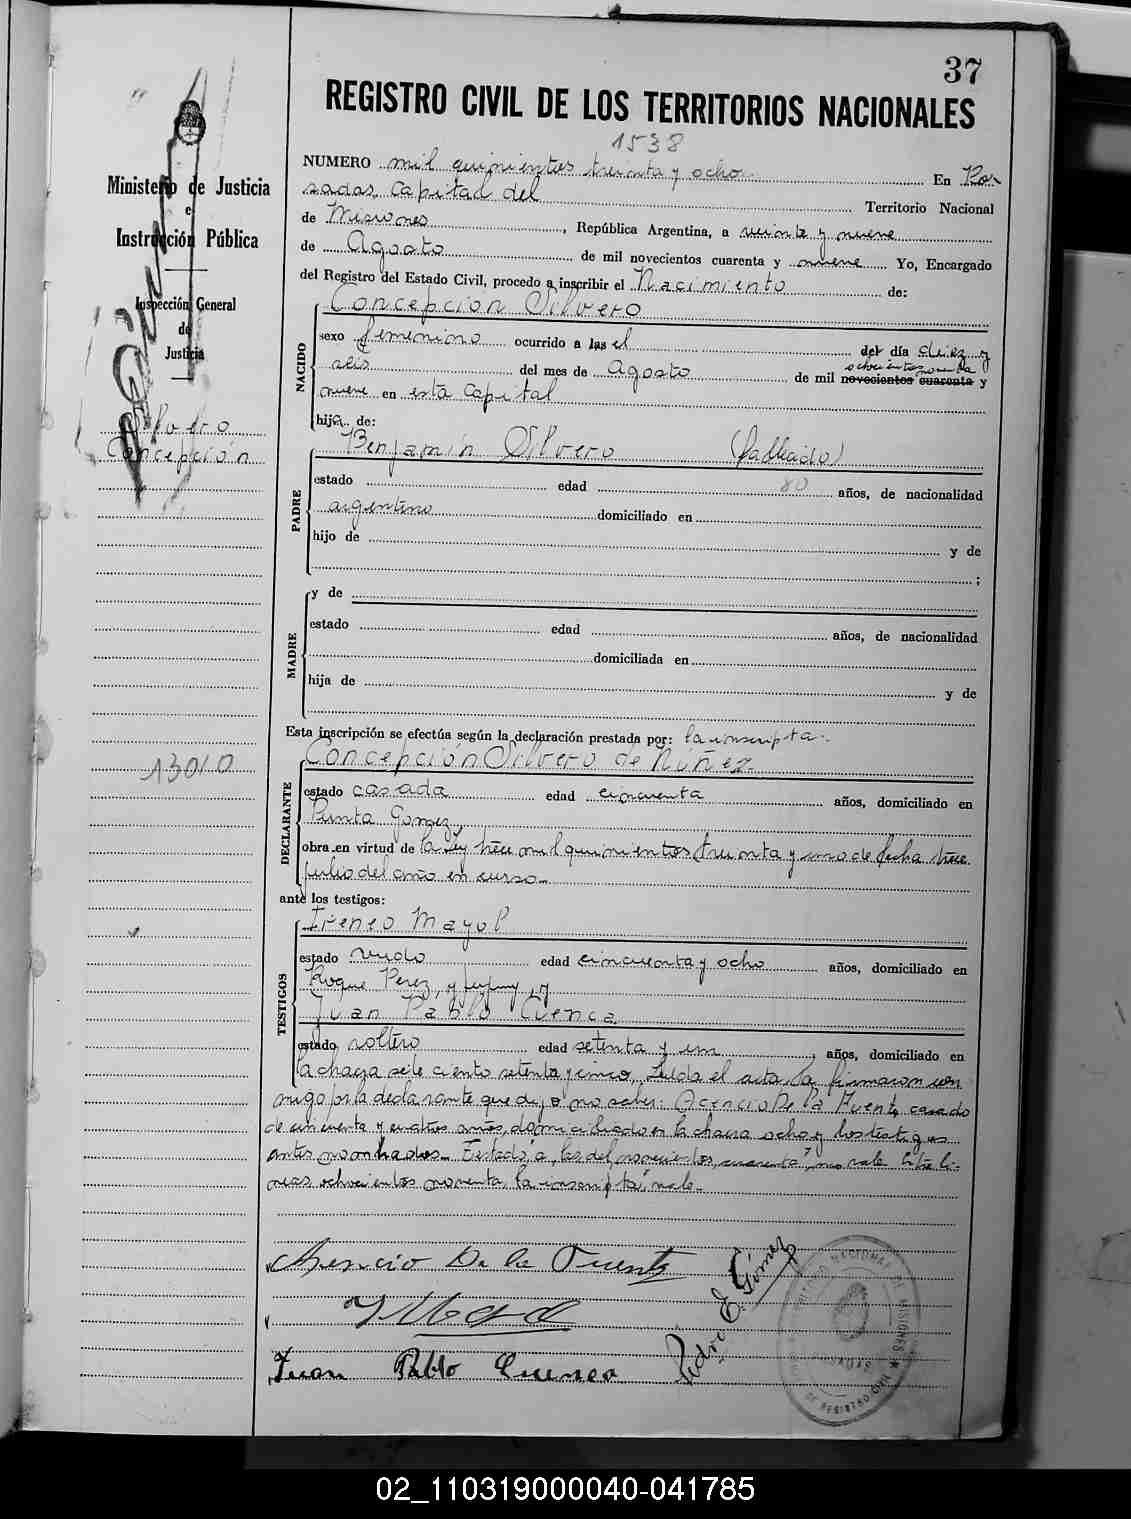 37
REGISTRO CIVIL DE LOS TERRITORIOS NACIONALES
1538
NUMERO mil quinientos treinta y ocho En Po-
sadas, Capital del Territorio Nacional
de Misiones, República Argentina, a veinte y nueve
de Agosto de mil novecientos cuarenta y nueve Yo, Encargado
del Registro del Estado Civil, procedo a inscribir el Nacimiento de:
Concepción Silvero
NACIDO
sexo femenino ocurrido a las el del día diez y
seis del mes de Agosto de mil novecientos cuarenta y
ochocientos noventa
nueve en esta Capital
hija de:
Benjamín Silvero (fallecido)
PADRE
estado edad 80 años, de nacionalidad
argentino domiciliado en
hijo de y de
;
MADRE
y de
estado edad años, de nacionalidad
domiciliada en
hija de y de
Esta inscripción se efectúa según la declaración prestada por: la inscripta.
Concepción Silvero de Núñez
DECLARANTE
estado casada edad cincuenta años, domiciliado en
Punta Gomez,
obra en virtud de la ley trece mil quinientos treinta y uno de fecha trece
julio del año en curso.-
ante los testigos:
Ireneo Mayol
TESTIGOS
estado viudo edad cincuenta y ocho años, domiciliado en
Roque Perez, y
Juan Pablo Cuenca
estado soltero edad setenta y un años, domiciliado en
la chacra siete ciento setenta y cinco, Leída el acta, la firmaron con-
migo por la declarante que dijo no saber: Acencio De la Fuente, casado
de cincuenta y cuatro años, domiciliado en la chacra ocho y los testigos
antes nombrados. Testado "a las del, novecientos, cuarenta", no vale Entre lí-
neas, ochocientos noventa, la inscripta, vale.-
Asencio De la Fuente
Juan Pablo Cuenca
Pedro E. Gómez
Ministerio de Justicia
e
Instrucción Pública
Inspección General
de
Justicia
Silvero
Concepción
13010
02_110319000040-041785